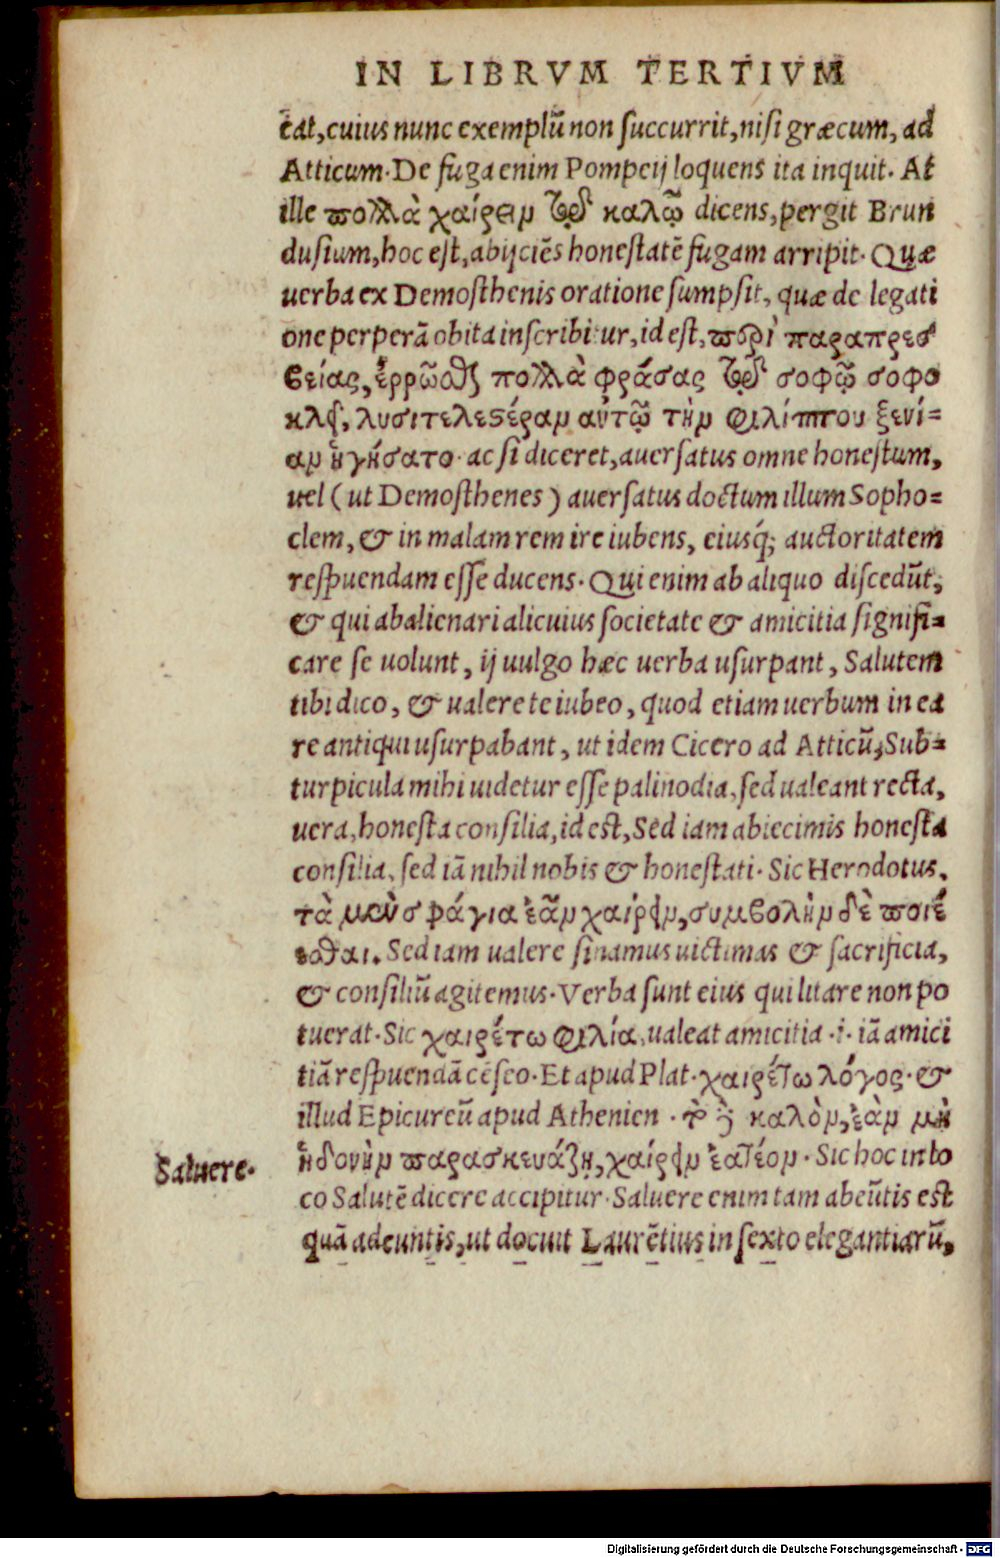 IN LIBRVM TERTIVM
eat, cuius nunc exemplū non succurrit, nisi græcum, ad
Atticum. De fuga enim Pompeij loquens ita inquit. At
ille πολλὰ χαίρειν τῷ καλῷ dicens, pergit Brun
dusium, hoc est, abijciēs honestatē fugam arripit. Quæ
uerba ex Demosthenis oratione sumpsit, quæ de legati
one perperā obita inscribitur, id est, περὶ παραπρεσ
βείας, ἐρρῶσθαι πολλὰ φράσας τῷ σοφῷ σοφο
κλεῖ, λυσιτελεστέραν αὐτῷ τὴν φιλίππου ξενί=
αν ἡγήσατο. ac si diceret, auersatus omne honestum,
uel (ut Demosthenes) auersatus doctum illum Sopho=
clem, & in malam rem ire iubens, eiusq́; auctoritatem
respuendam esse ducens. Qui enim ab aliquo discedūt,
& qui abalienari alicuius societate & amicitia signifi=
care se uolunt, ij uulgo hæc uerba usurpant, Salutem
tibi dico, & ualere te iubeo, quod etiam uerbum in ea
re antiqui usurpabant, ut idem Cicero ad Atticū, Sub=
turpicula mihi uidetur esse palinodia, sed ualeant recta,
uera, honesta consilia, id est, Sed iam abiecimis honesta
consilia, sed iā nihil nobis & honestati. Sic Herodotus,
τὰ μὲν σφάγια ἐᾶν χαίρειν, συμβολὴν δὲ ποιέ
εσθαι. Sed iam ualere sinamus uictimas & sacrificia,
& consiliū agitemus. Verba sunt eius qui litare non po
tuerat. Sic χαιρέτω φιλία, ualeat amicitia .i. iā amici
tiā respuendā cēseo. Et apud Plat. χαιρέτω λόγος. &
illud Epicureū apud Athenien. καλὸν, ἐὰν μὴ
ἡδονὴν παρασκευάζῃ, χαίρειν ἐατέον. Sic hoc in lo
Saluere.
co Salutē dicere accipitur. Saluere enim tam abeūtis est
quā adeuntis, ut docuit Laurētius in sexto elegantiarū,
Digitalisierung gefördert durch die Deutsche Forschungsgemeinschaft - DFG